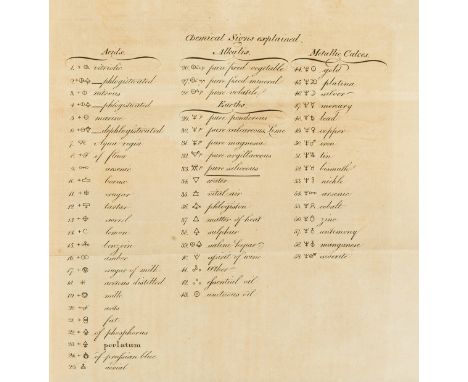 Chemical Signs explained.
Acids.
1. vitriolic
2. phlogisticated
3. nitrous
4. phlogisticated
5. marine
6. dephlogisticated
7. Aqua regis
8. of fluor
9. arsenic
10. borax
11. sugar
12. tartar
13. sorrel
14. lemon
15. benzoin
16. amber
17. sugar of milk
18. acetous distilled
19. milk
20. ants
21. fat
22. of phosphorus
23. perlatum
24. of prussian blue
25. aerial
Alkalis.
26. pure fixed vegetable
27. pure fixed mineral
28. pure volatile
Earths
29. pure ponderous
30. pure calcareous, Lime
31. pure magnesia
32. pure argillaceous
33. pure siliceous
34. water
35. vital air
36. phlogiston
37. matter of heat
38. sulphur
39. saline hepar
40. spirit of wine
41. Æther
42. essential oil
43. unctuous oil
Metallic Calces.
44. gold
45. platina
46. silver
47. mercury
48. lead
49. copper
50. iron
51. tin
52. bismuth
53. nickle
54. arsenic
55. cobalt
56. zinc
57. antimony
58. manganese
59. siderite